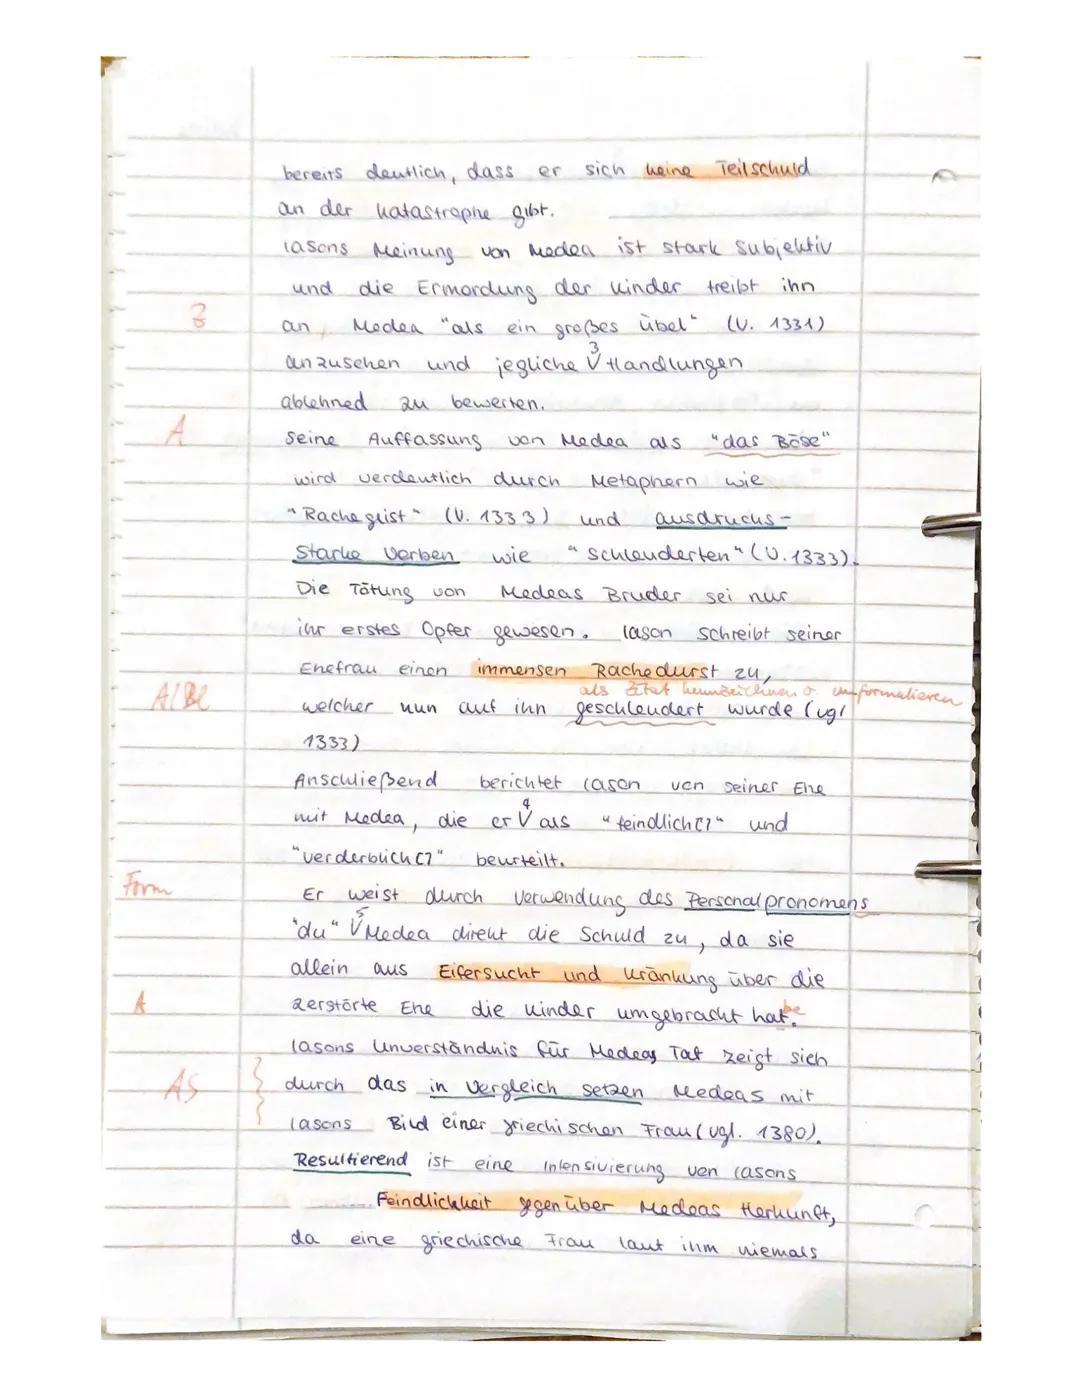 bereits deutlich, dass er sich keine Teilschuld
an der Katastrophe gibt.
Iasons Meinung von Medea ist stark subjektiv
und die Ermordung der Kinder treibt ihn
Z an, Medea "als ein großes Übel" (V. 1331)
3
anzusehen und jegliche V Handlungen
ablehned zu bewerten.
A Seine Auffassung von Medea als "das Böse"
wird verdeutlich durch Metaphern wie
"Rachegeist" (V. 1333) und ausdrucks-
starke Verben wie "schleuderten" (V. 1333).
Die Tötung von Medeas Bruder sei nur
ihr erstes Opfer gewesen. Iason schreibt seiner
Ehefrau einen immensen Rachedurst zu,
als Zitat kennzeichnen o. umformulieren
A/Bl welcher nun auf ihn geschleudert wurde (vgl
1333)
Anschließend berichtet Iason von seiner Ehe
4
mit Medea, die er V als "feindlich[]" und
"verderblich[]" beurteilt.
Form Er weist durch Verwendung des Personalpronomens
5
"du" V Medea direkt die Schuld zu, da sie
allein aus Eifersucht und Kränkung über die
A zerstörte Ehe die Kinder umgebracht hat. be
Iasons Unverständnis für Medeas Tat zeigt sich
AS durch das in Vergleich setzen Medeas mit
Iasons Bild einer griechischen Frau (vgl. 1380).
Resultierend ist eine Intensivierung von Iasons
Feindlichkeit gegenüber Medeas Herkunft,
da eine griechische Frau laut ihm niemals